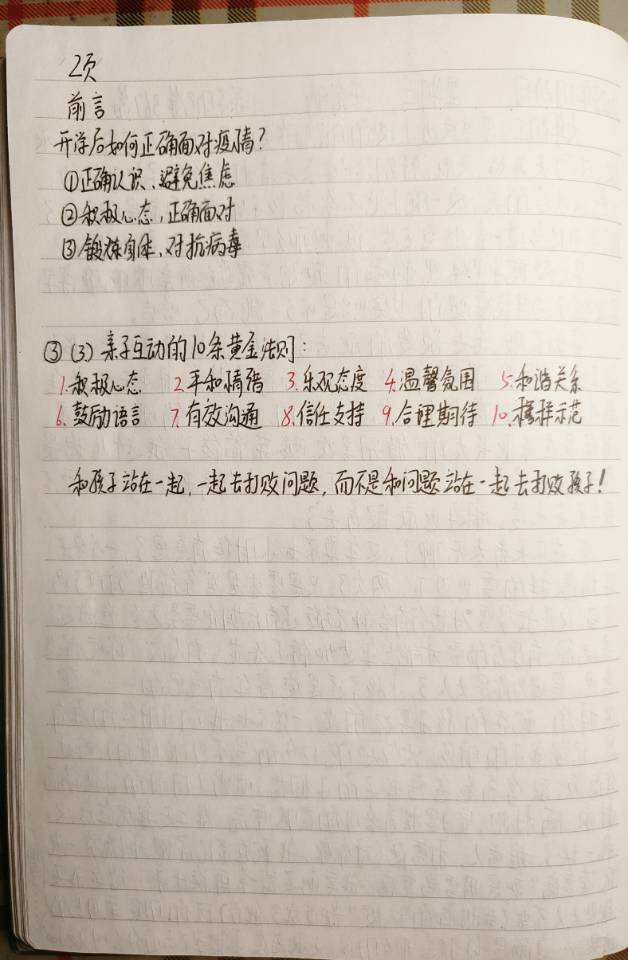 2页
前言
开学后如何正确面对疫情?
①正确认识、避免焦虑
②积极心态,正确面对
③锻炼身体,对抗病毒
③(3)亲子互动的10条黄金法则:
1.积极心态 2.平和情绪 3.乐观态度 4.温馨氛围 5.和谐关系
6.鼓励语言 7.有效沟通 8.信任支持 9.合理期待 10.榜样示范
和孩子站在一起,一起去打败问题,而不是和问题站在一起去打败孩子!